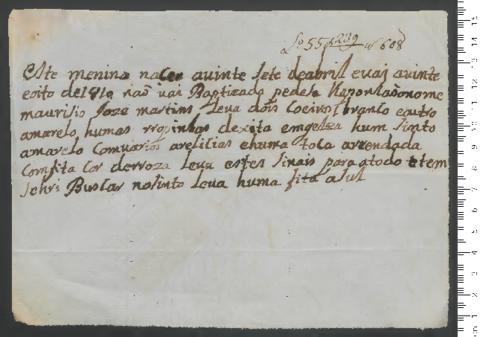 Lo 55 f 239 nº 608
Este menino naceu avinte sete deabril evai avinte
eoito de1819 não vai Baptizado pedese lhaponhaõonome
maurisio Joze martins Leva dois Coeiros hum branco eoutro
amarelo, humas rropinhas dexita hum Sinto
amarelo Comvarias arelilias ehuma tola arrendada
Comfita Cor derroza Leva estes Sinais paraatodo otem
Sehir Buslar nosinto Leva huma fita asul